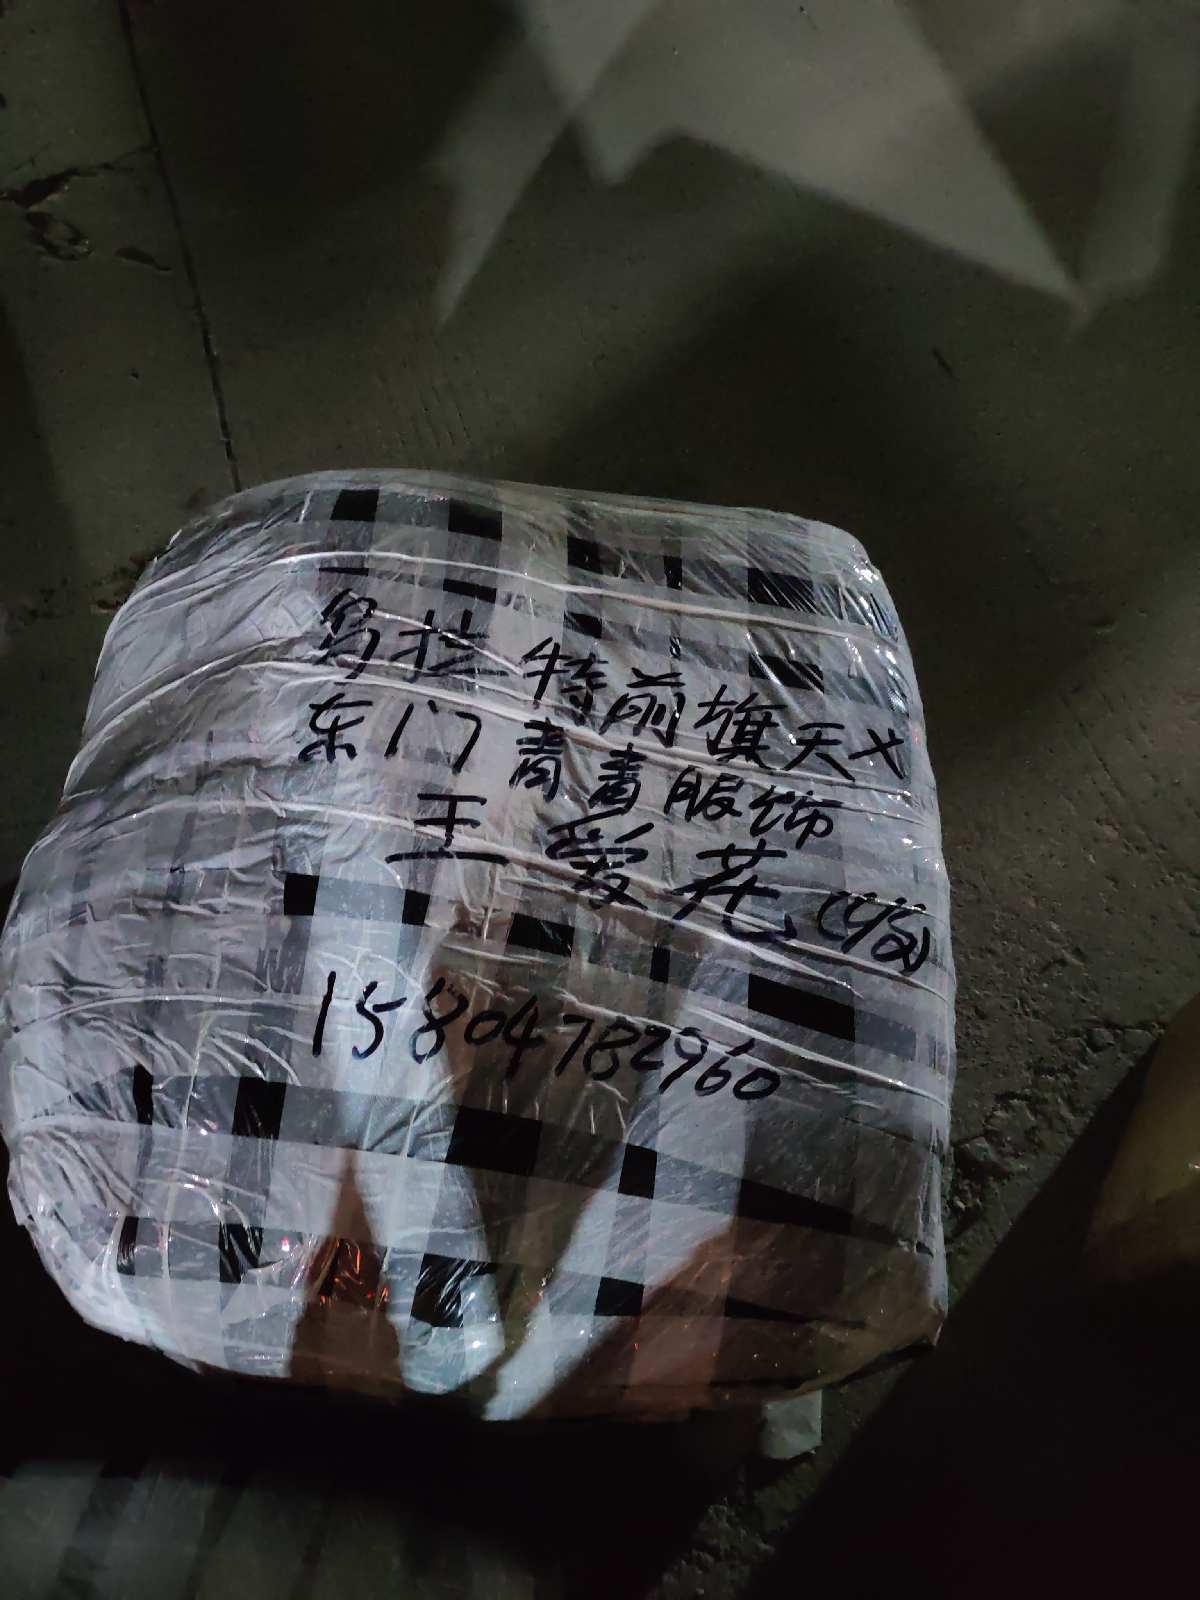 乌拉特前旗天义
东门青青服饰
王爱花(收)
15804782960